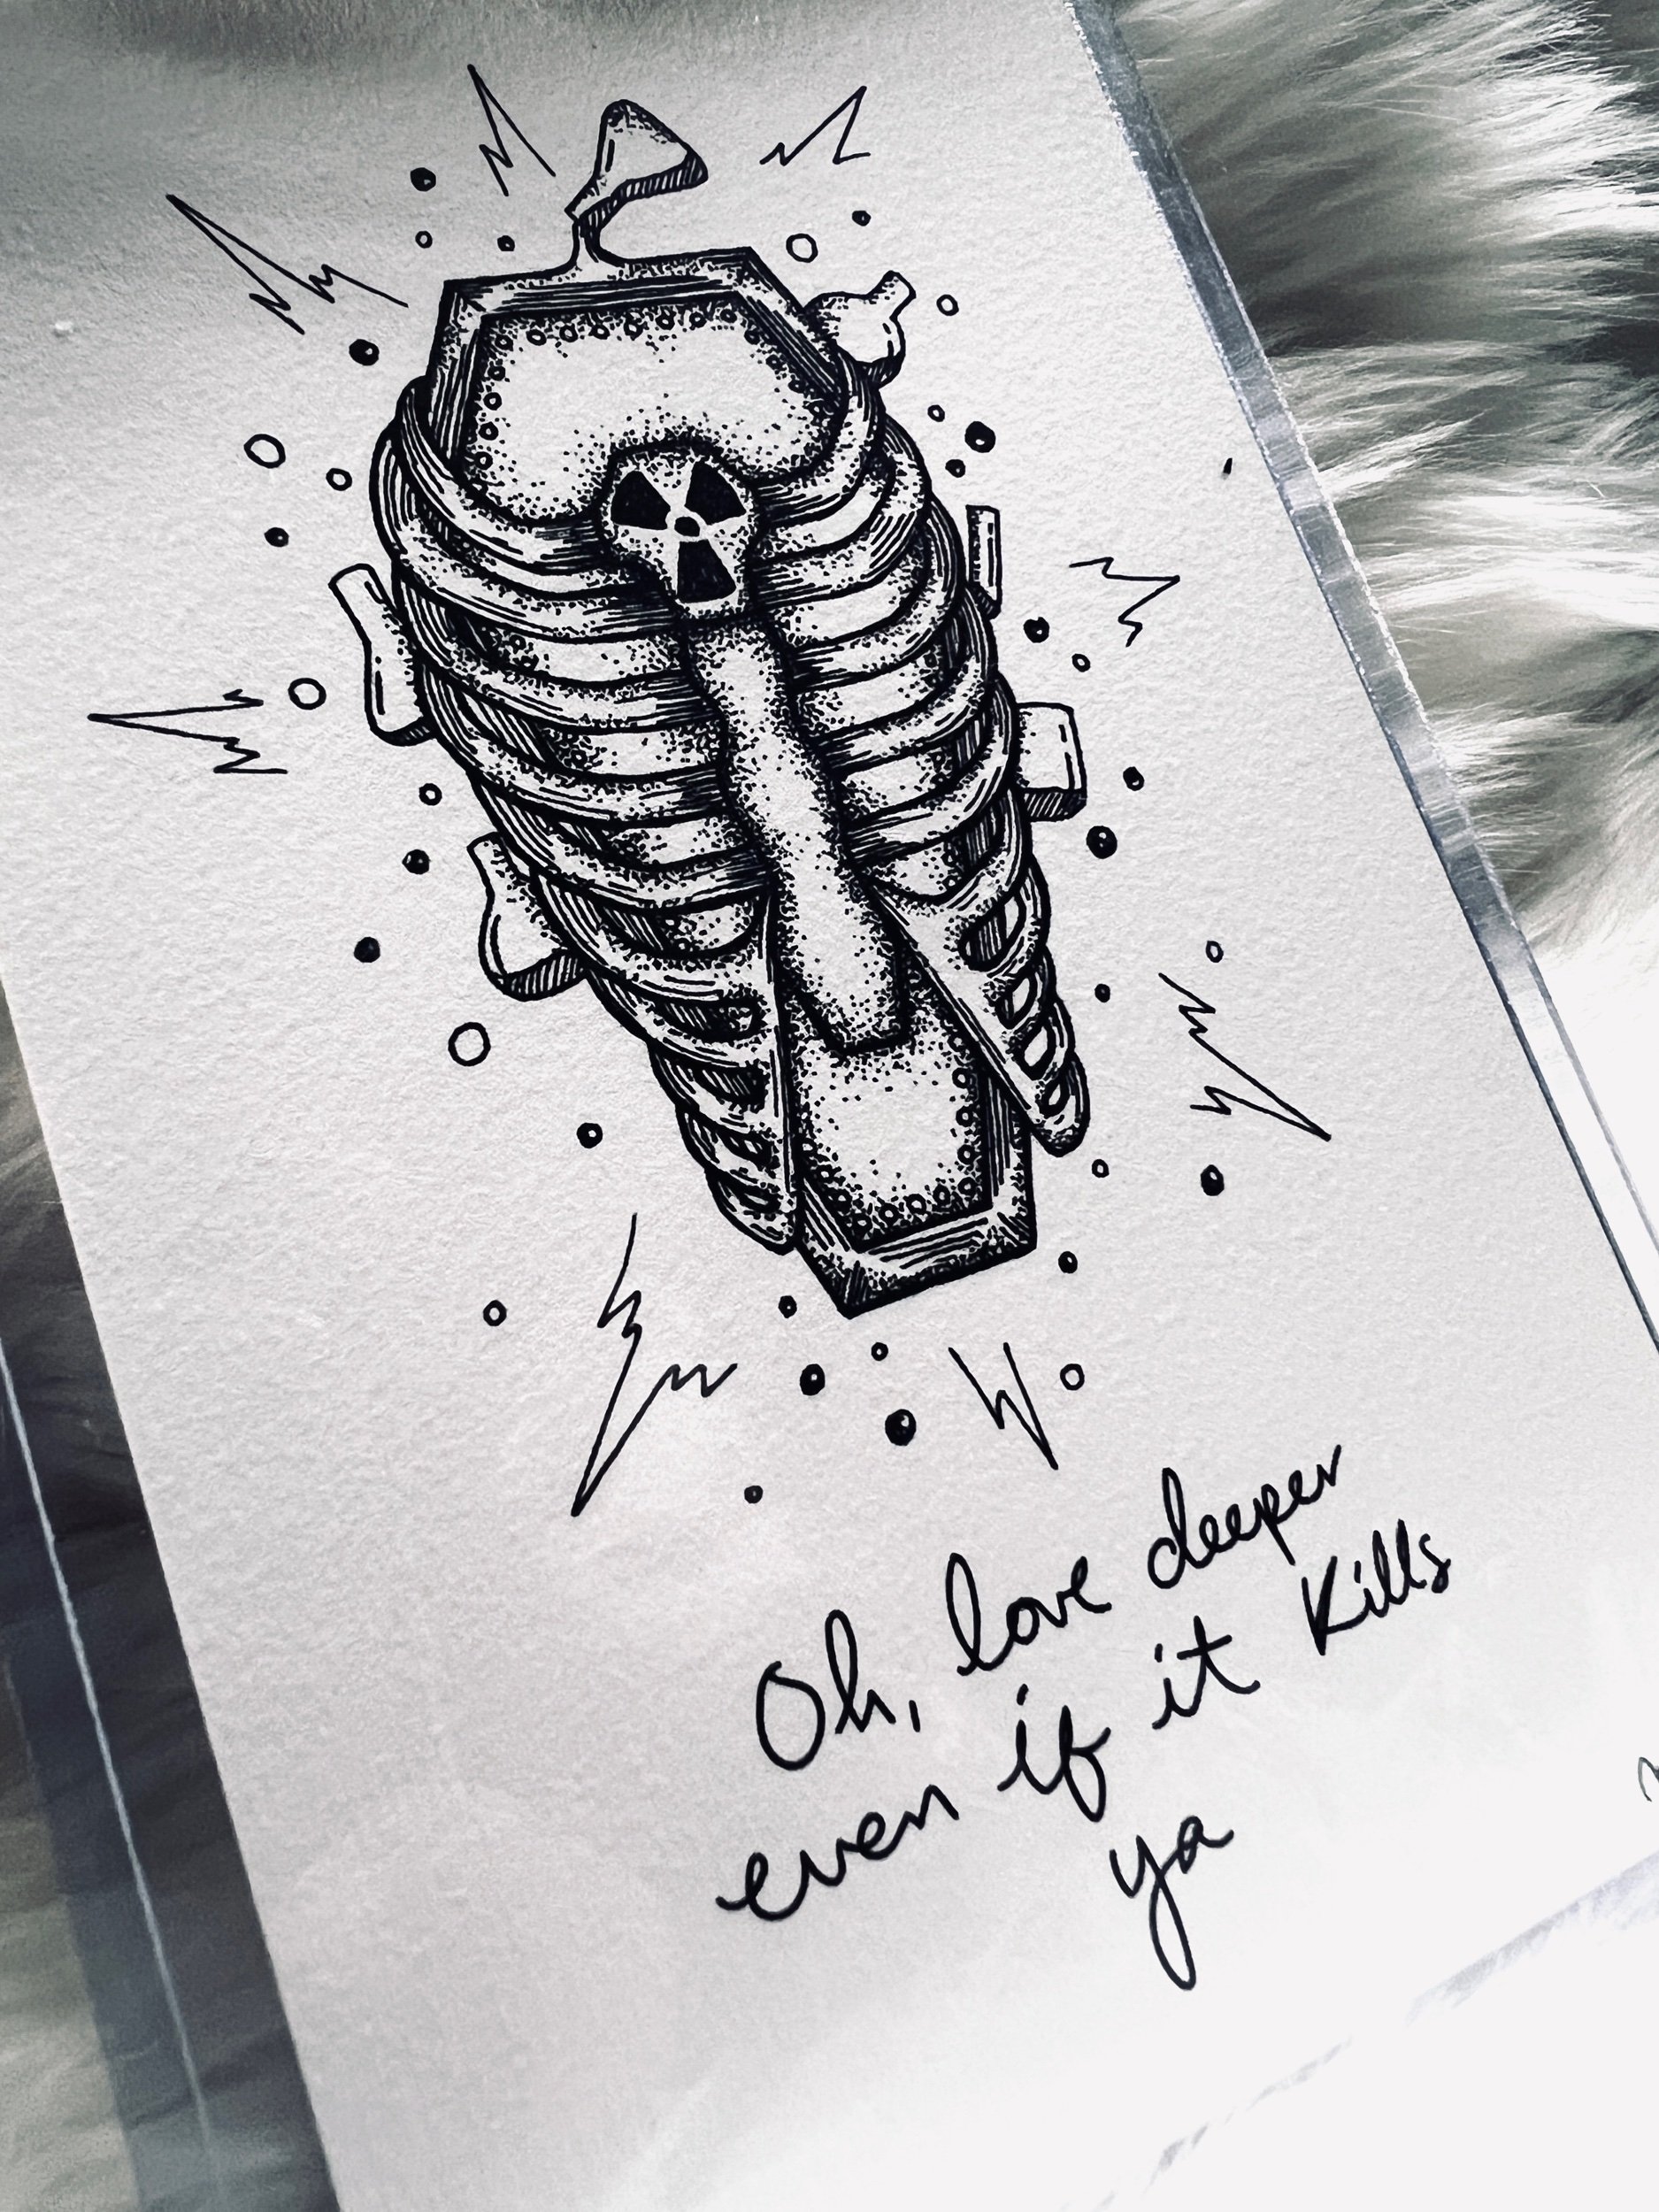 Oh, love deeper
even if it kills
ya